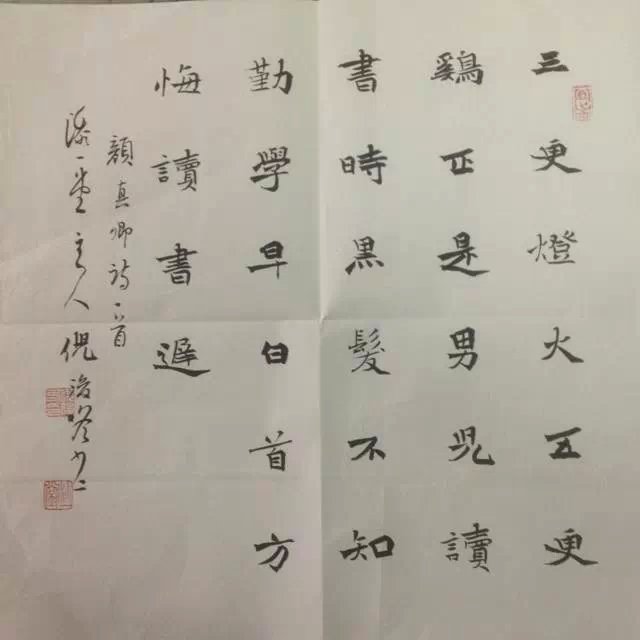 三更燈火五更
鷄正是男兒讀
書時黑髮不知
勤學早白首方
悔讀書遲
顏真卿詩一首
主人倪